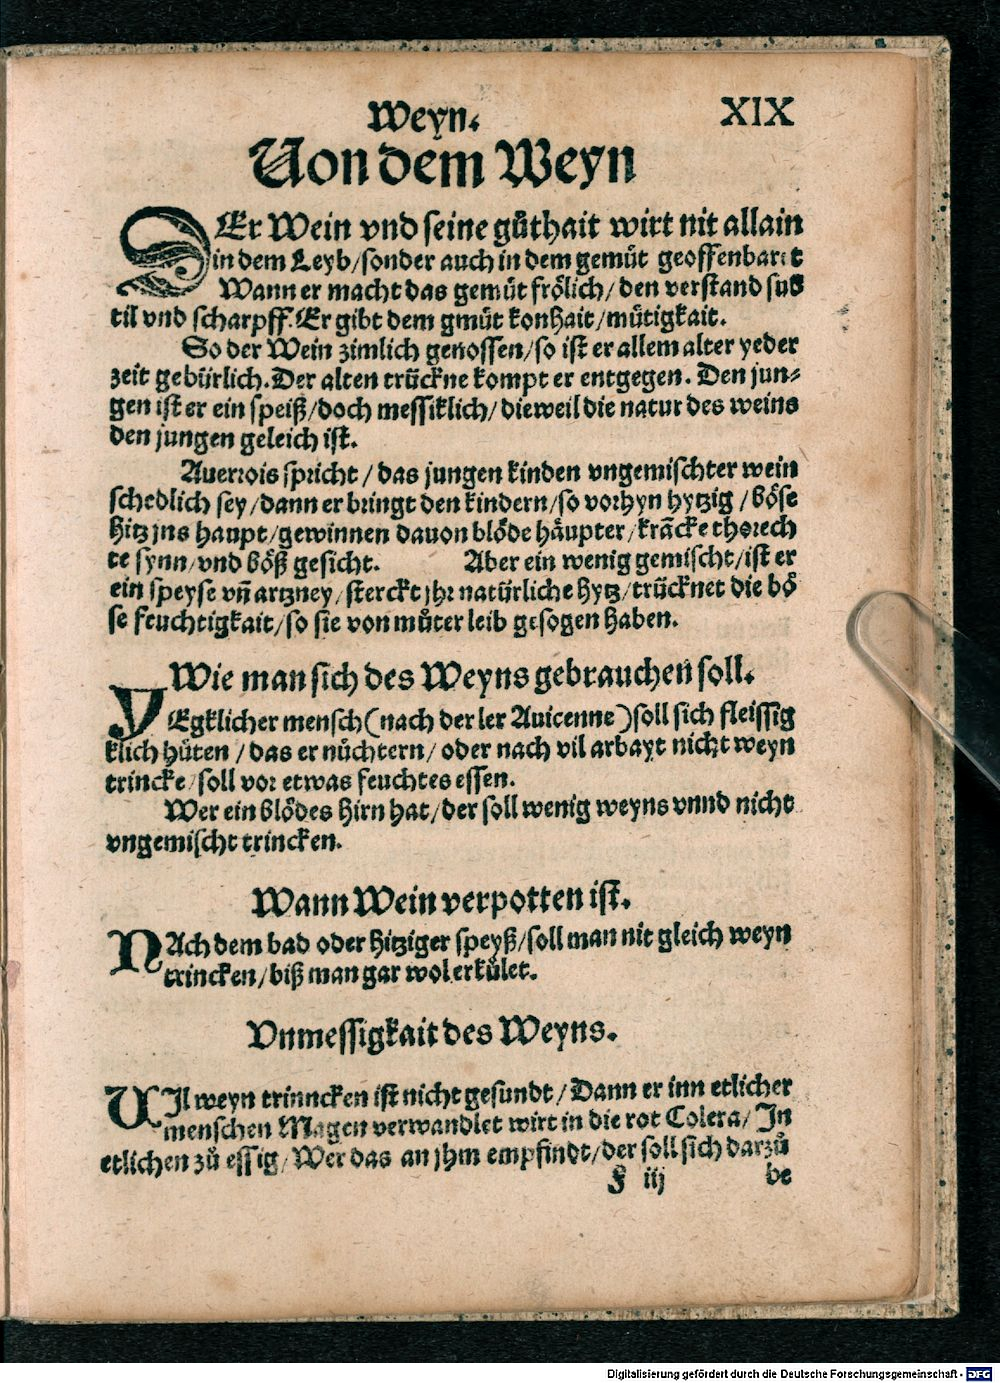 Weyn.
XIX
Von dem Weyn
DEr Wein vnd seine gůthait wirt nit allain
in dem Leyb/sonder auch in dem gemüt geoffenbaret
Wann er macht das gemüt frölich/ den verstand sub
til vnd scharpff. Er gibt dem gmüt konhait/mütigkait.
So der Wein zimlich genossen/so ist er allem alter yeder
zeit gebürlich. Der alten trückne kompt er entgegen. Den jun⸗
gen ist er ein speiß/doch messiklich/ dieweil die natur des weins
den jungen geleich ist.
Auerrois spricht / das jungen kinden vngemischter wein
schedlich sey /dann er bringt den kindern/so vorhyn hytzig /böse
hitz jns haupt/gewinnen dauon blöde häupter/krācke thorech
te synn/vnd böß gesicht. Aber ein wenig gemischt/ist er
ein speyse vñ artzney/ sterckt jhr natürliche hytz/trücknet die bö
se feuchtigkait/so sie von můter leib gesogen haben.
Wie man sich des Weyns gebrauchen soll.
YEgklicher mensch (nach der ler Auicenne) soll sich fleissig
klich hüten / das er nüchtern/ oder nach vil arbayt nicht weyn
trincke/soll vor etwas feuchtes essen.
Wer ein blödes hirn hat/der soll wenig weyns vnnd nicht
vngemischt trincken.
Wann Wein verpotten ist.
NAch dem bad oder hitziger speyß/soll man nit gleich weyn
trincken/biß man gar wol erkület.
Vnmessigkait des Weyns.
VIl weyn trinncken ist nicht gesundt/ Dann er inn etlicher
menschen Magen verwandlet wirt in die rot Colera/ In
etlichen zů essig/ Wer das an jhm empfindt/der soll sich darzů
F iij be
Digitalisierung gefördert durch die Deutsche Forschungsgemeinschaft - DFG